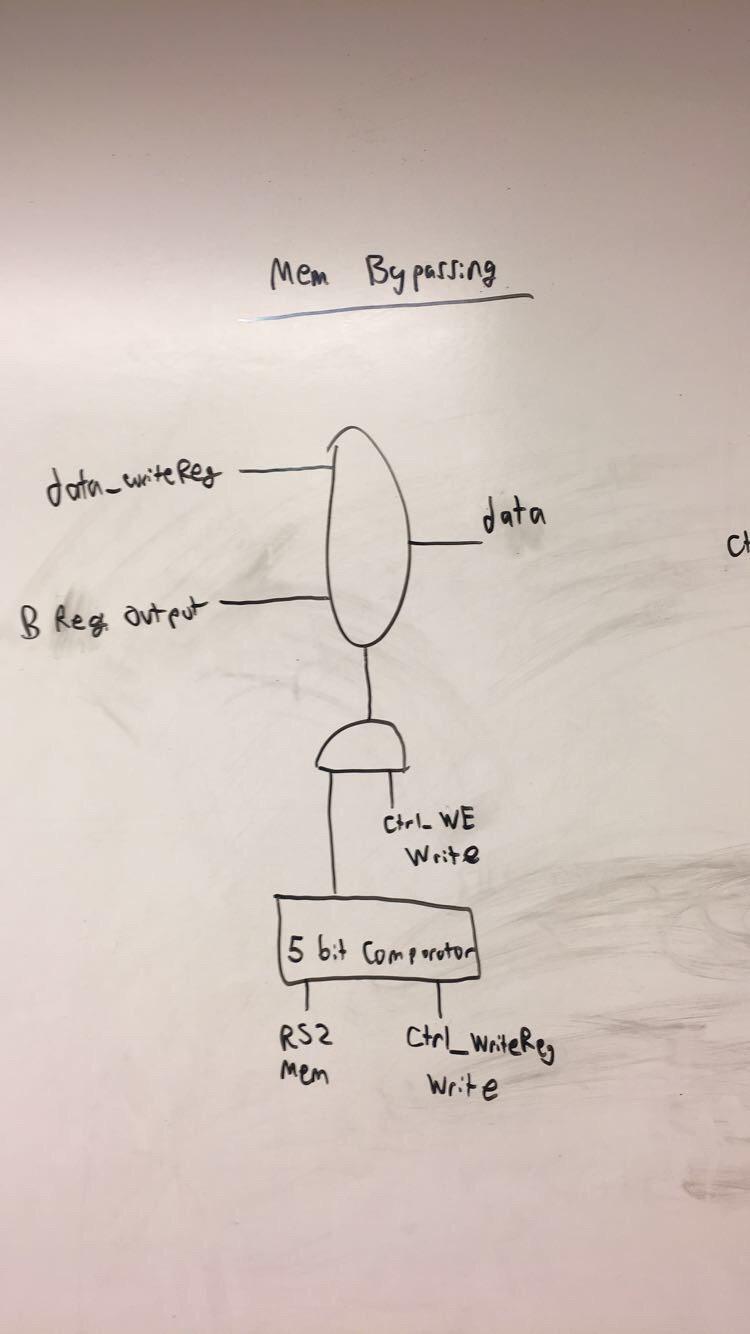 Mem Bypassing
data_writeReg
data
Ct
B Reg output
Ctrl_WE
Write
5 bit Comparator
RS2
Mem
Ctrl_WriteReg
Write